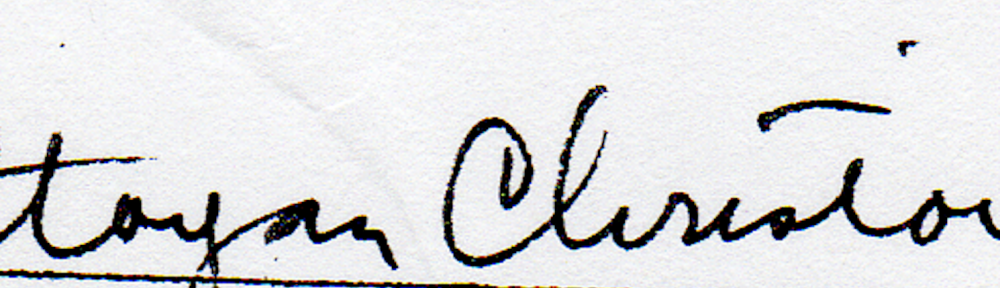 toyan Christo